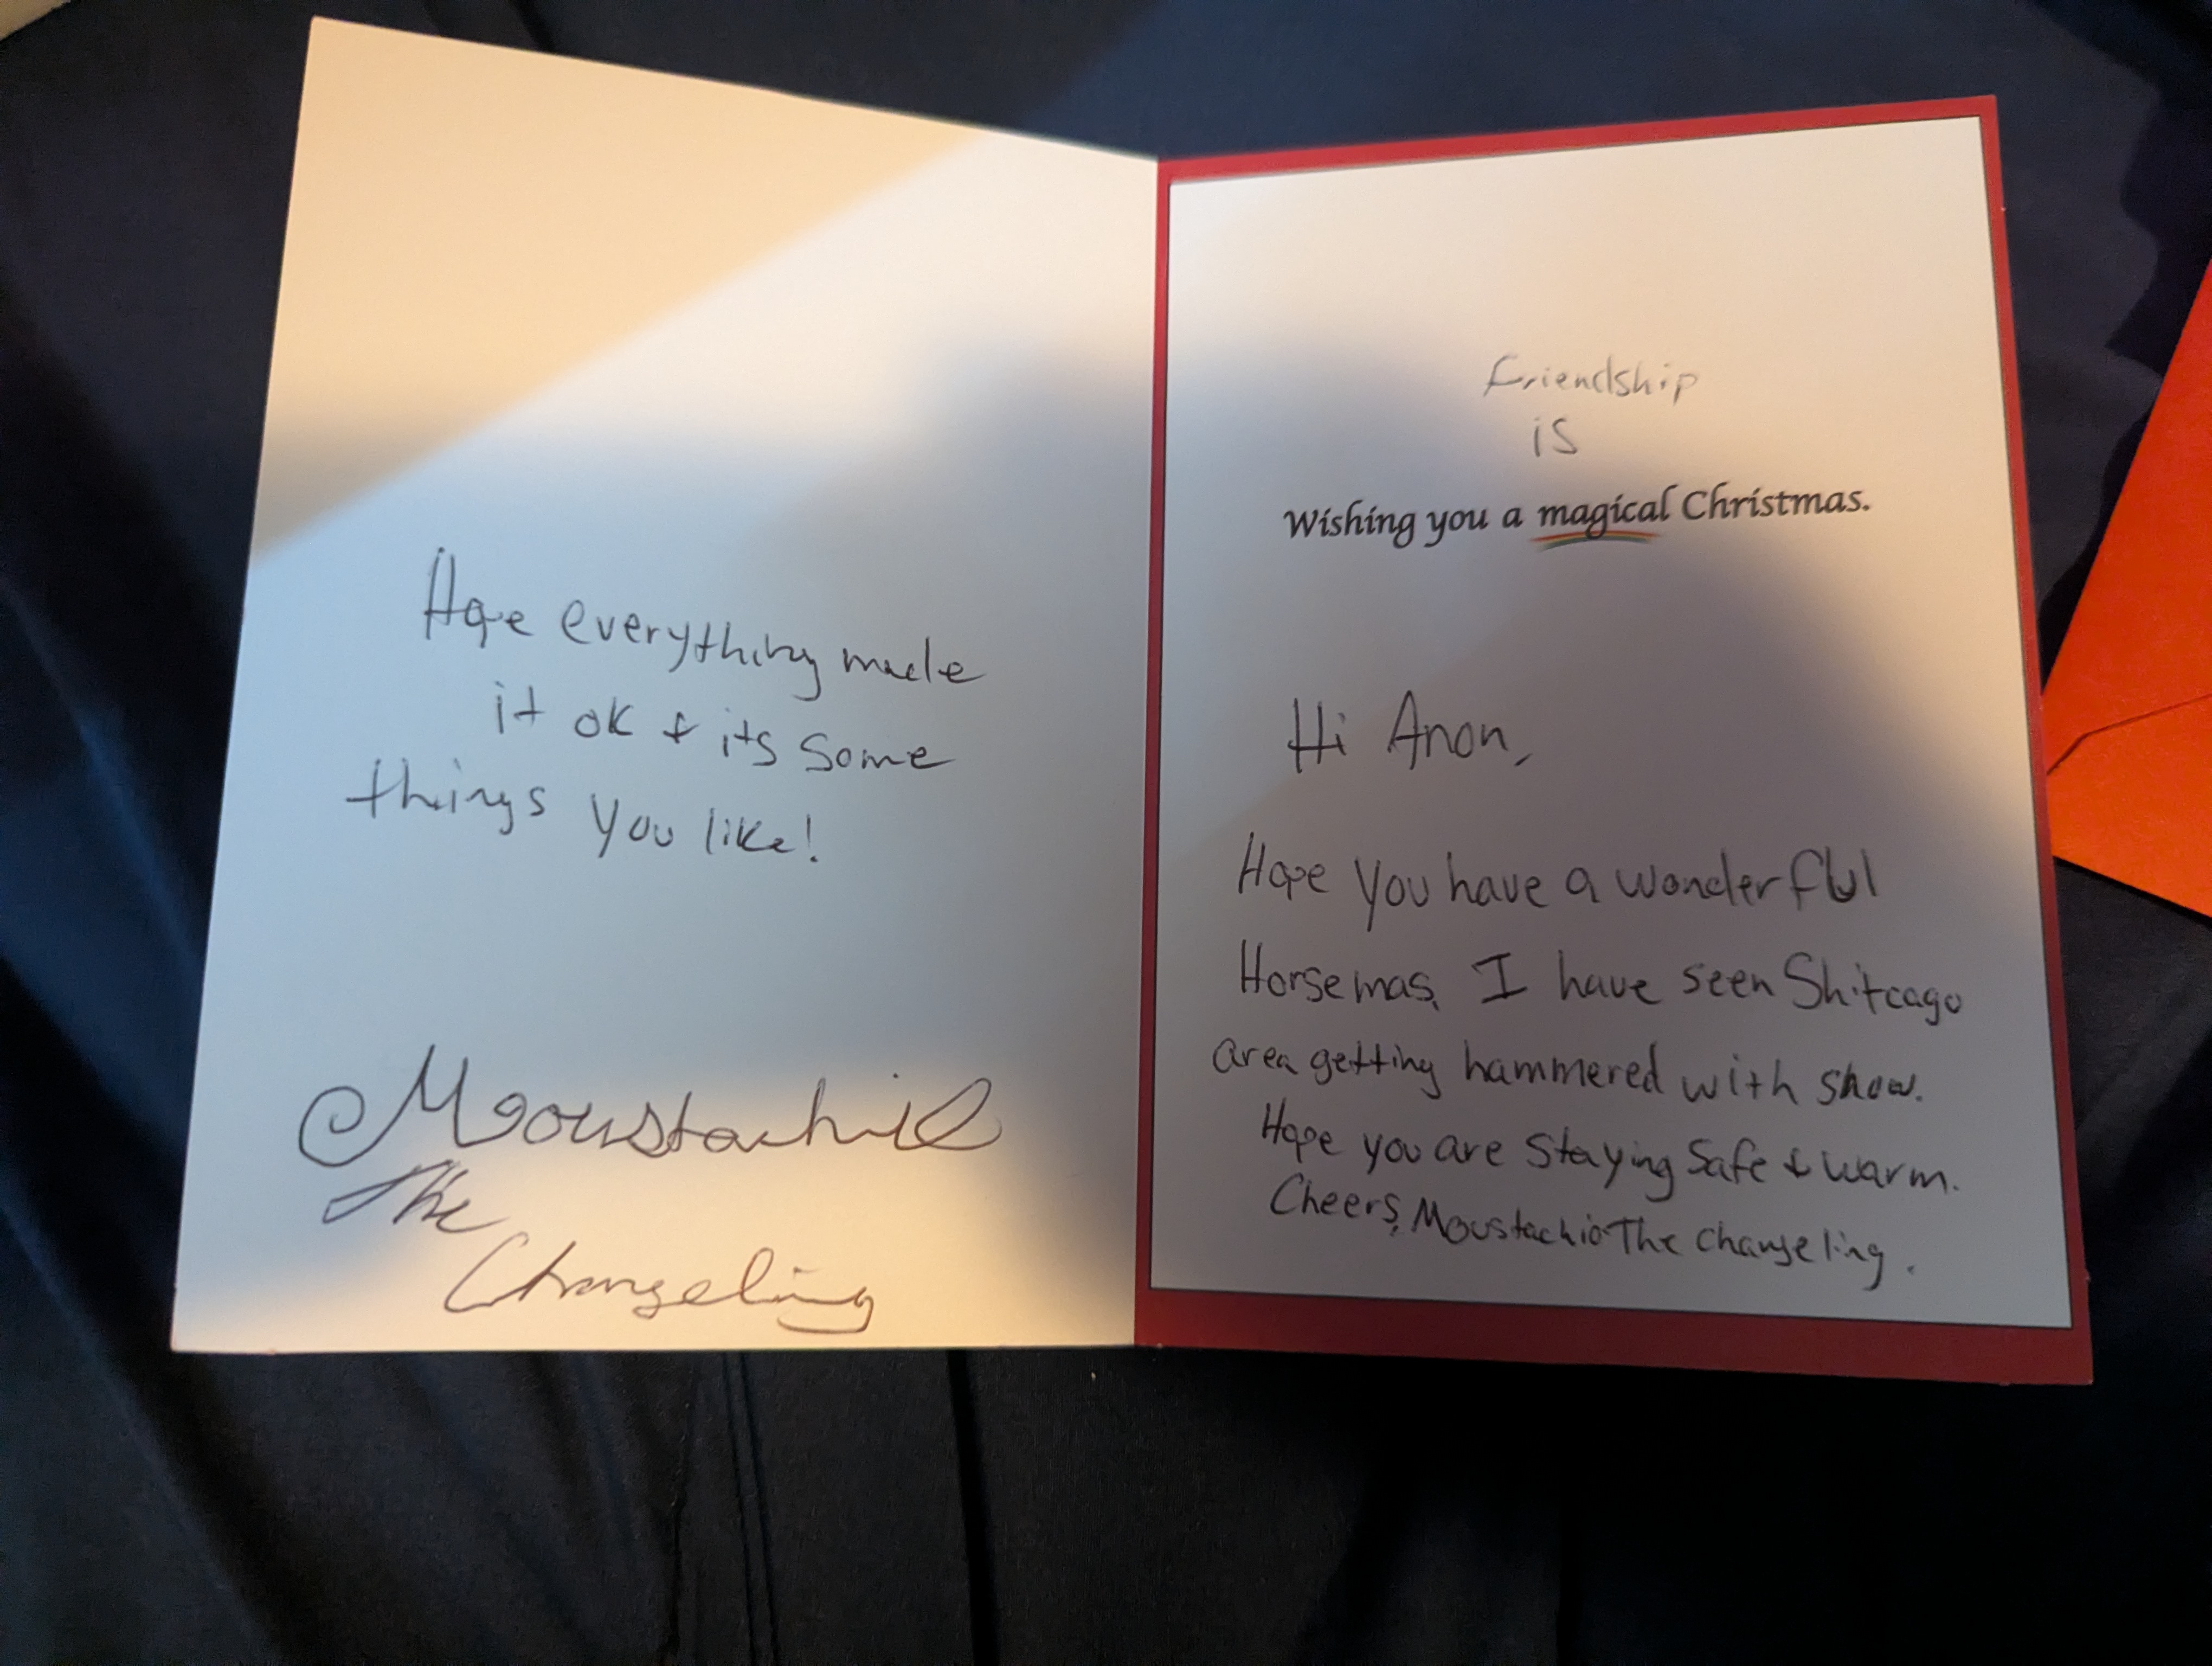 Hope everything made
it ok & its some
things you like!
Moustachio
The
Changeling
Friendship
is
Wishing you a magical Christmas.
Hi Anon,
Hope you have a wonderful
Horsemas, I have seen Shitcago
area getting hammered with snow.
Hope you are staying safe & warm.
Cheers, Moustachio The Changeling.